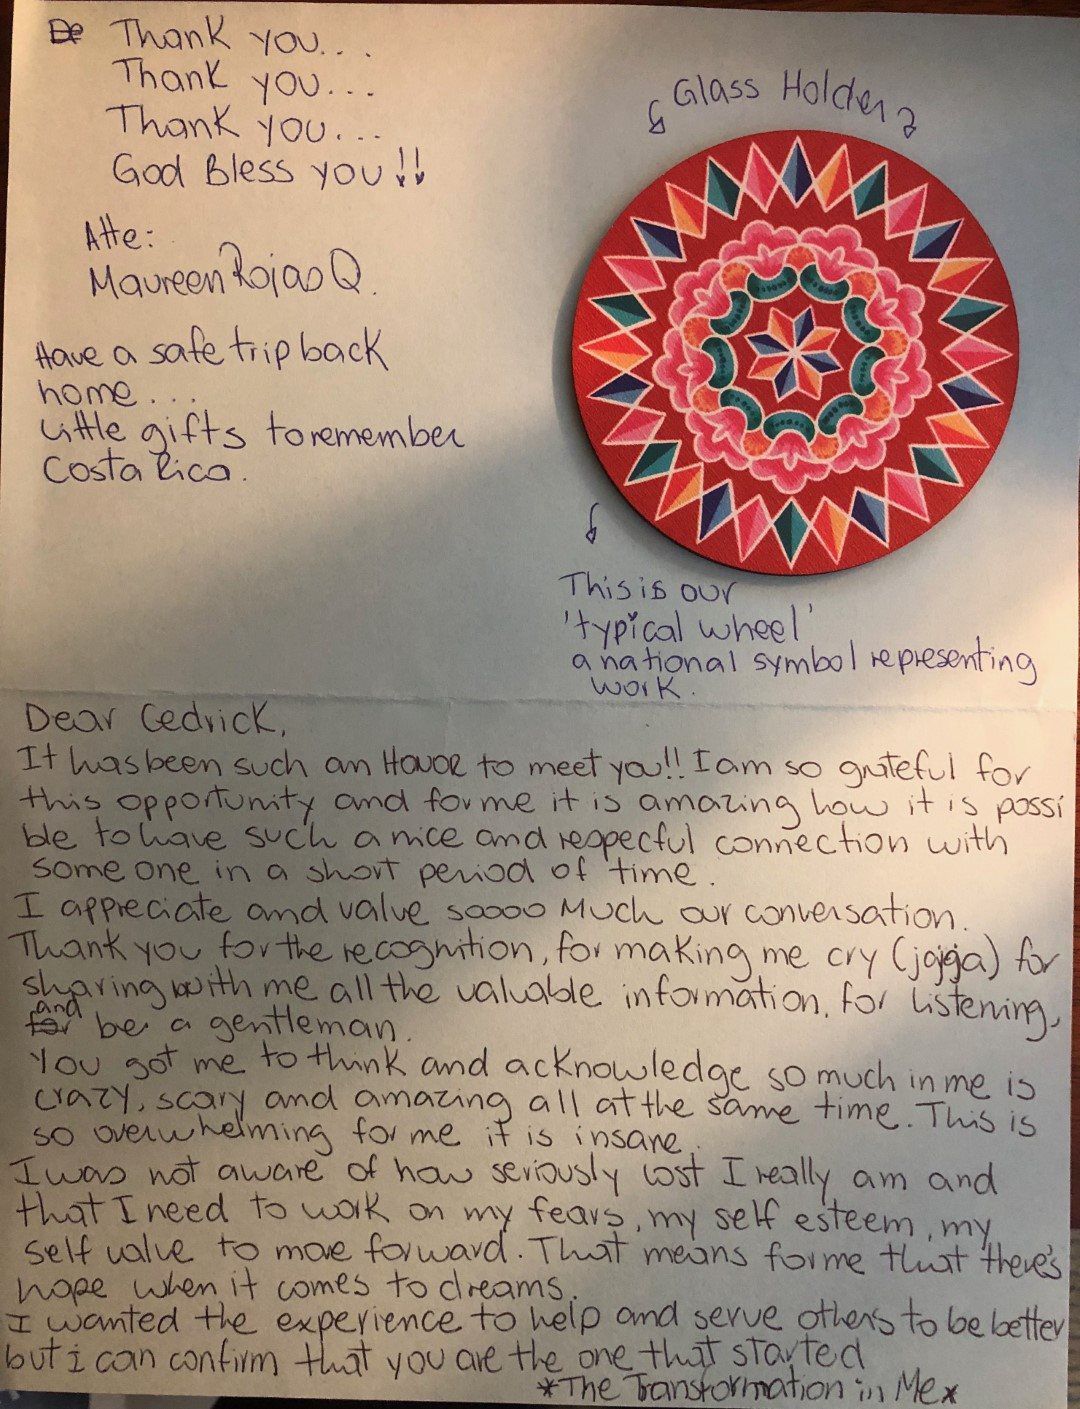 De Thank you...
Thank you...
Thank you...
God Bless you!!
Atte:
Maureen Rojas Q.
Have a safe trip back
home...
Little gifts to remember
Costa Rica.
Glass Holder
This is our
'typical wheel'
a national symbol representing
work.
Dear Cedrick,
It has been such an HONOR to meet you!! I am so grateful for
this opportunity and for me it is amazing how it is possi
ble to have such a nice and respecful connection with
some one in a short period of time.
I appreciate and value soooo Much our conversation.
Thank you for the recognition, for making me cry (jajaja) for
sharing with me all the valuable information, for listening,
and
for be a gentleman.
You got me to think and acknowledge so much in me is
crazy, scary and amazing all at the same time. This is
so overwhelming for me it is insane.
I was not aware of how seriously lost I really am and
that I need to work on my fears, my self esteem, my
self value to move forward. That means for me that there's
hope when it comes to dreams.
I wanted the experience to help and serve others to be better
but i can confirm that you are the one that started
*The Transformation in Me*